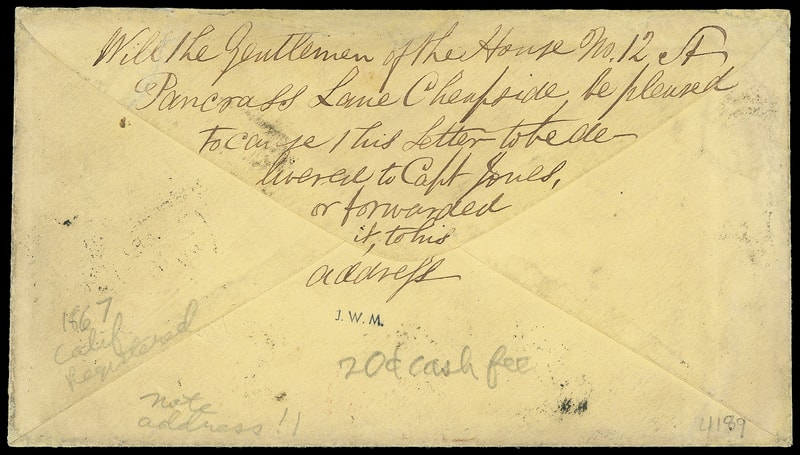 Will the Gentlemen of the House No. 12 St
Pancrass Lane Cheapside, be pleased
to cause this Letter to be de-
livered to Capt Jones,
or forwarded
it, to his
address
J. W. M.
1867
Calif
Registered
20¢ cash fee
note
address !!
4189